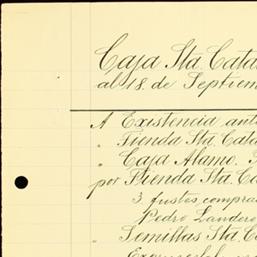 Caja Sta. Cata
al 18. de Septiem
A Existencia ant
" Tienda Sta. Cata
" Caja Alamo.
por Tienda Sta. Ca
3 fustes compra
Pedro Landero
" Semillas Sta. C